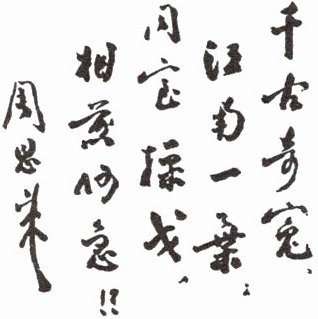 千古奇冤、
江南一叶；
同室操戈，
相煎何急！？
周恩来